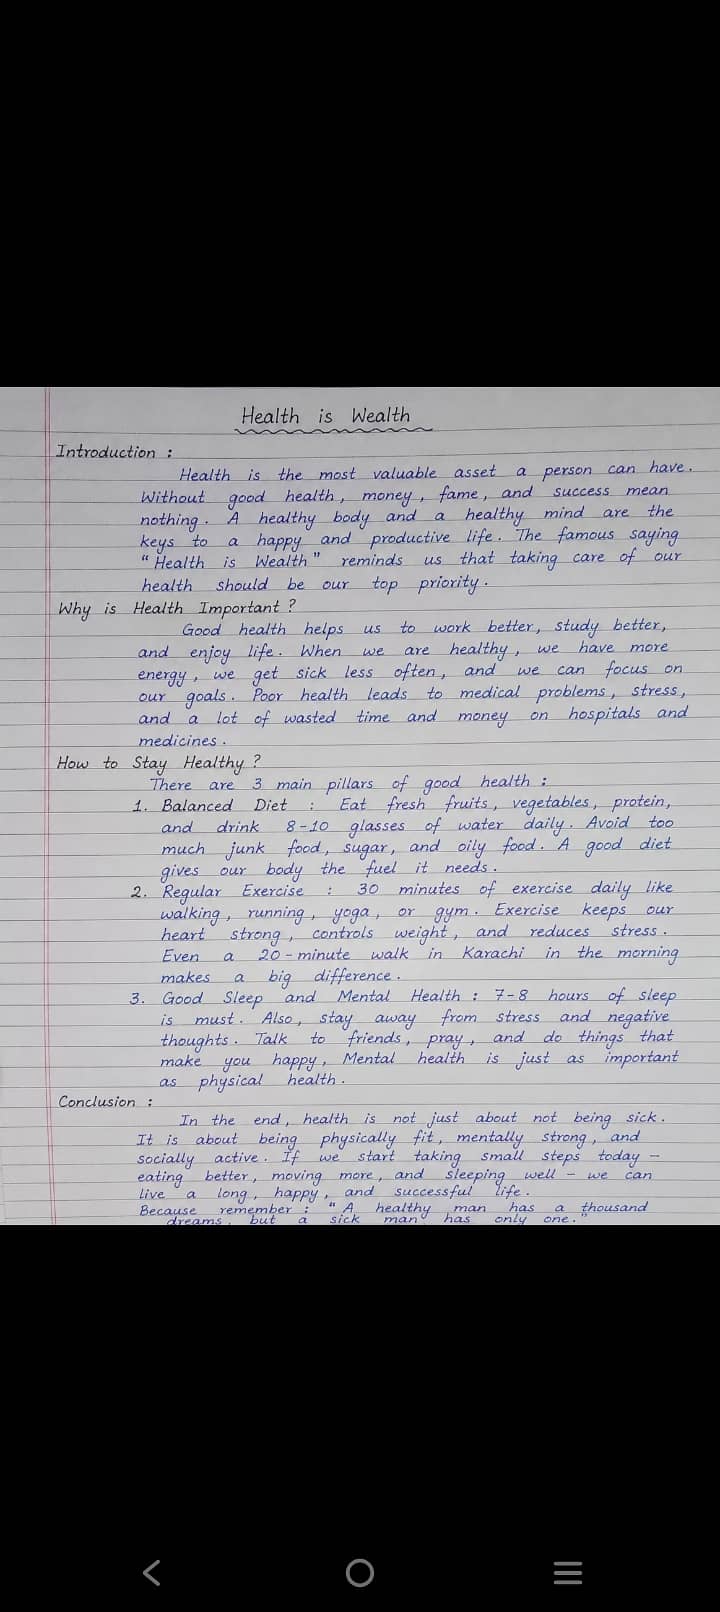 Health is Wealth
Introduction :
Health is the most valuable asset a person can have.
Without good health, money, fame, and success mean
nothing. A healthy body and a healthy mind are the
keys to a happy and productive life. The famous saying
"Health is Wealth" reminds us that taking care of our
health should be our top priority.
Why is Health Important ?
Good health helps us to work better, study better,
and enjoy life. When we are healthy, we have more
energy, we get sick less often, and we can focus on
our goals. Poor health leads to medical problems, stress,
and a lot of wasted time and money on hospitals and
medicines.
How to Stay Healthy ?
There are 3 main pillars of good health :
1. Balanced Diet : Eat fresh fruits, vegetables, protein,
and drink 8-10 glasses of water daily. Avoid too
much junk food, sugar, and oily food. A good diet
gives our body the fuel it needs.
2. Regular Exercise : 30 minutes of exercise daily like
walking, running, yoga, or gym. Exercise keeps our
heart strong, controls weight, and reduces stress.
Even a 20-minute walk in Karachi in the morning
makes a big difference.
3. Good Sleep and Mental Health : 7-8 hours of sleep
is must. Also, stay away from stress and negative
thoughts. Talk to friends, pray, and do things that
make you happy, Mental health is just as important
as physical health.
Conclusion :
In the end, health is not just about not being sick.
It is about being physically fit, mentally strong, and
socially active. If we start taking small steps today –
eating better, moving more, and sleeping well – we can
live a long, happy, and successful life.
Because remember : "A healthy man has a thousand
dreams, but a sick man has only one."